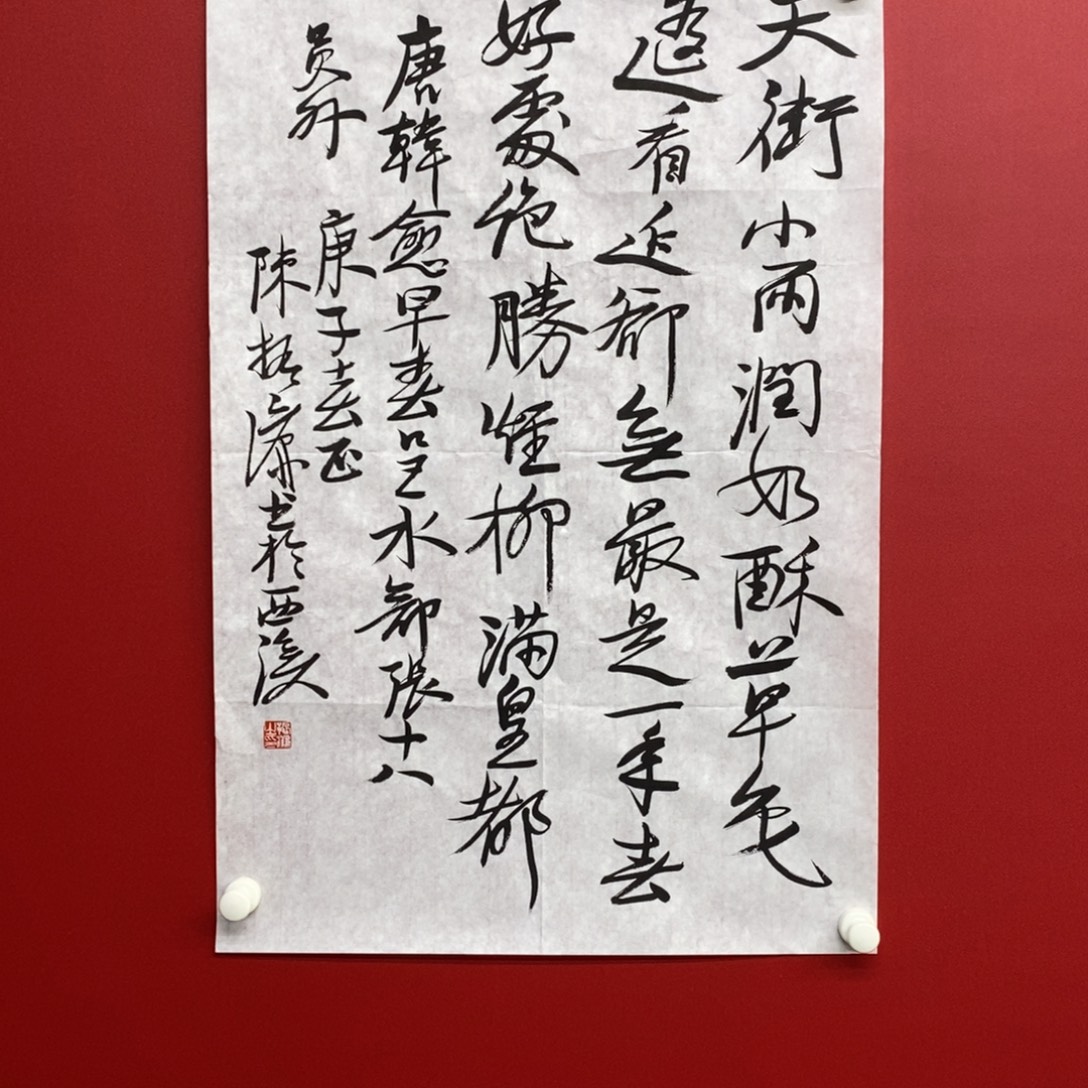 天街小雨潤如酥草色
遙看近卻無最是一年春
好處絶勝煙柳滿皇都
唐韓愈早春呈水部張十八
員外 庚子春正
陳振濂書於西溪